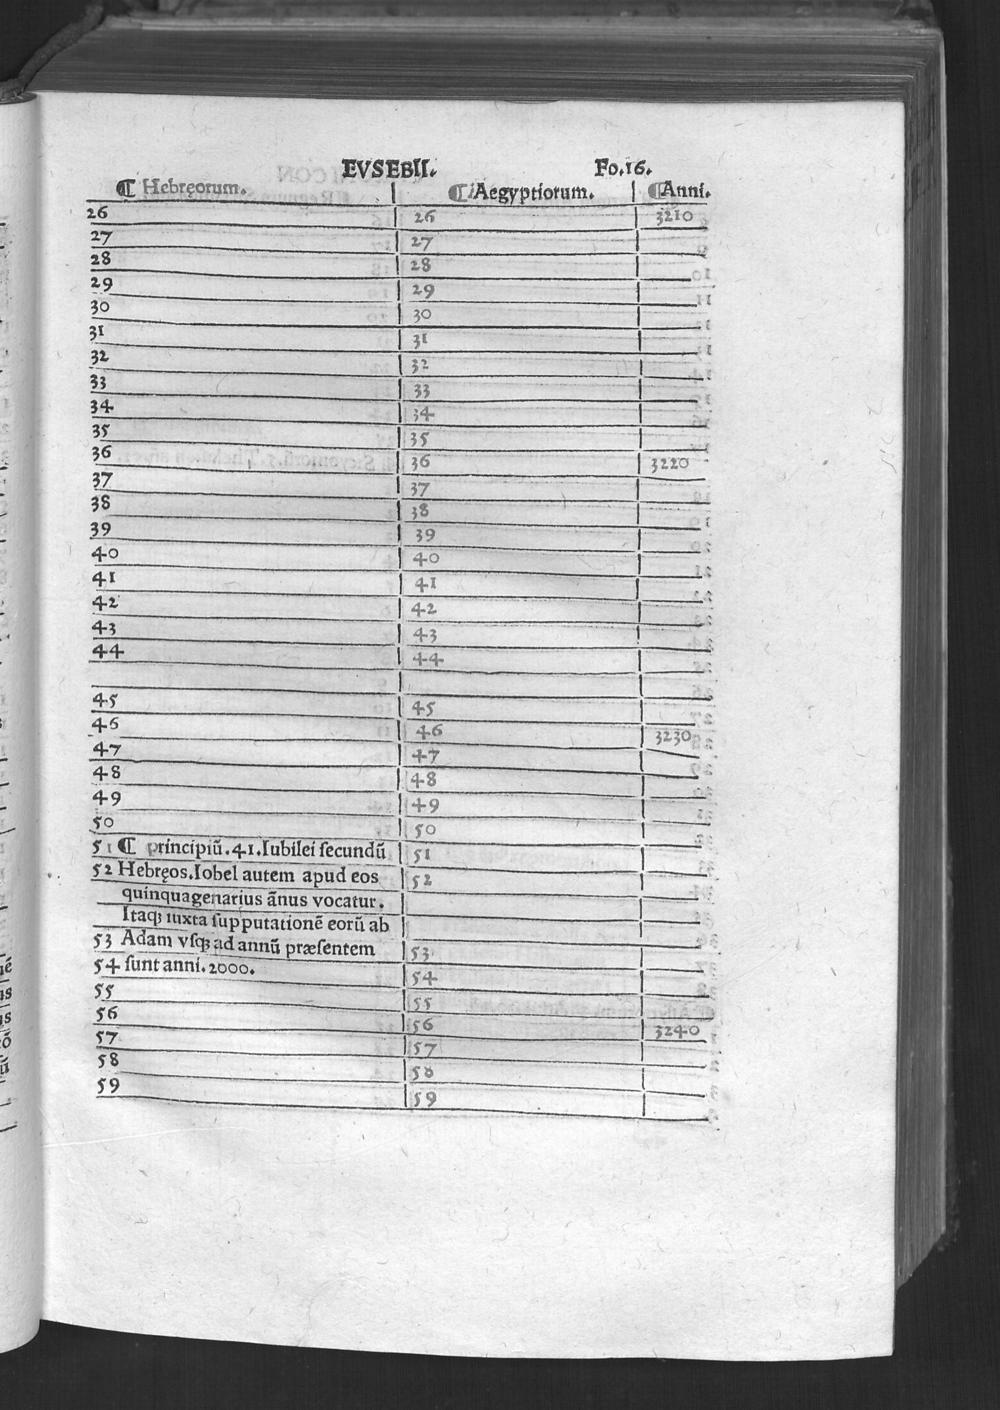 EVSEBII. Fo.16.
¶ Hebręorum. ¶ Aegyptiorum. ¶ Anni.
26 26 3210
27 27
28 28
29 29
30 30
31 31
32 32
33 33
34 34
35 35
36 36 3220
37 37
38 38
39 39
40 40
41 41
42 42
43 43
44 44
45 45
46 46 3230
47 47
48 48
49 49
50 50
51 ¶ principiũ.41.Iubilei ſecundũ 51
52 Hebręos.Iobel autem apud eos 52
quinquagenarius ãnus vocatur.
Itaqꝫ iuxta ſupputationẽ eorũ ab
53 Adam vſqꝫ ad annũ præſentem 53
54 ſunt anni.2000. 54
55 55
56 56 3240
57 57
58 58
59 59